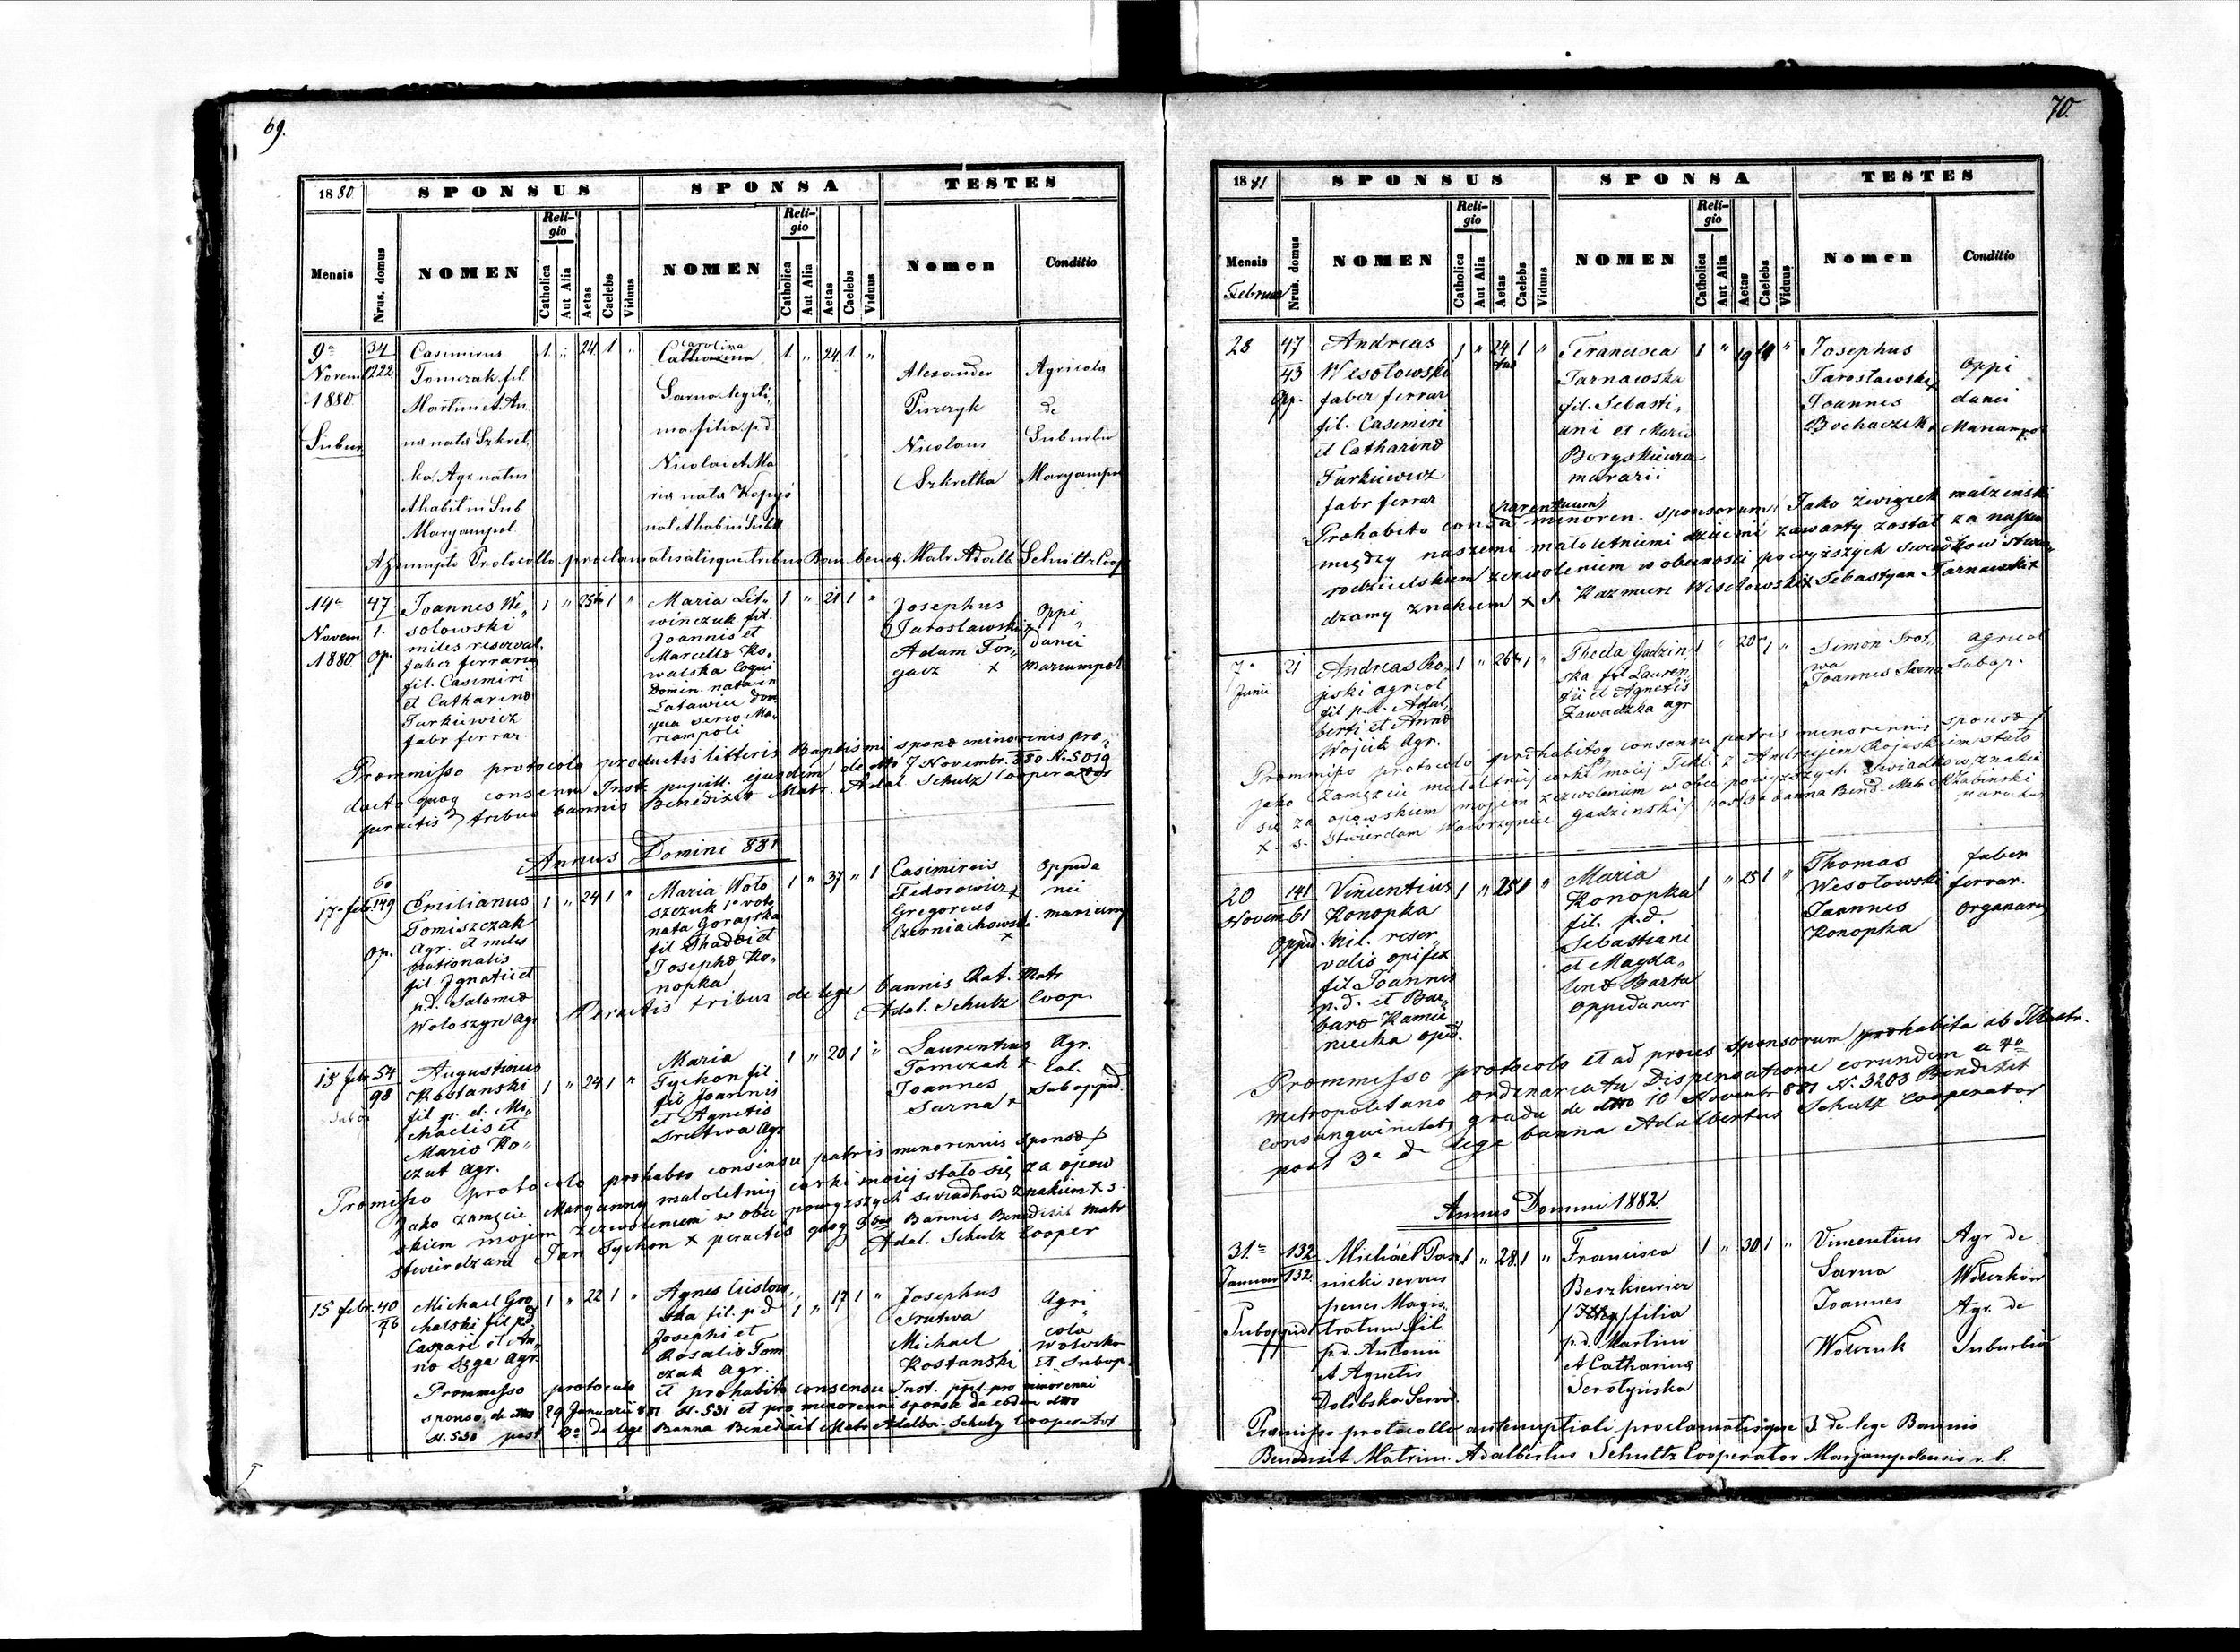 69.
1880
SPONSUS
SPONSA
TESTES
Mensis
Nrus. domus
NOMEN
Religio
Catholica
Aut Alia
Aetas
Caelebs
Viduus
NOMEN
Religio
Catholica
Aut Alia
Aetas
Caelebs
Viduus
Nomen
Conditio
9a
Novem
1880
Subur
34
222
Casimirus
Tomczak fil.
Martini et An
na nata Szkreł
ka Agr natus
et habit in Sub
Maryampol
1 " 24 1 "
Carolina
Catharina
Sarna legiti
ma filia p.d
Nicolai et Ma
ria nata Kopyś
nat et hab in Sub
1 " 24 1 "
Alexander
Piszczyk
Nicolaus
Szkrełka
Agricola
de
Suburbio
Maryampol
Assumpto Protocollo proclamatisque tribus Ban bened. Matr. Adalb Schultz Coop
14a
Novem
1880
47
1.
op.
Joannes We
sołowski
miles reservat.
faber ferrarius
fil. Casimiri
et Catharinæ
Turkiewicz
fabr ferrar.
1 " 25 1 "
Maria Lit
winczuk fil.
Joannis et
Marcellæ Ko
walska
Domin. nata in
Latawice
qua serw. Ma
riampoli
1 " 21 1 "
Josephus
Jarosławski x
Adam For
gacz x
Oppi
danei
Mariampol
Prommisso protocolo productis litteris Baptismi sponsæ minorenis pro
ducto quoq consensu Inst. pupill. ejusdem de dto 7 Novembr. 880 N. 5019
peractis tribus bannis Benedixit Matr. Adal Schulz Cooperator
Annus Domini 881
17a febr.
60
149
Op.
Emilianus
Tomiszczak
Agr. et miles
nationalis
fil. Ignatii et
p.d. Salomeæ
Wołoszyn Agr
1 " 24 1 "
Maria Woło
szczuk 1o voto
nata Gorajska
fil Thadei et
Josephæ Ko
nopka
1 " 37 " 1
Casimirus
Fedorowicz x
Gregorius
Czerniachowski
x
Oppida
nei
mariamp
Peractis tribus de lege bannis Rat. Matr
Adal. Schulz Coop.
15 febr
Subop
54
98
Augustinus
Kostanski
fil p. d. Mi
chaelis et
Mariæ Ko
czut Agr.
1 " 24 1 "
Maria
Tychon fil
fil Joannis
et Agnetis
Srutwa Agr
1 " 20 1 "
Laurentius
Tomczak x
Joannes
Sarna x
Agr.
Col.
Suboppid.
Promisso protocolo prohabito consensu patris minorennis sponsæ
Jako zamęcie Maryanny małoletniej carki moiej stało się za ojcow
skiem mojem zezwoleniem w obec powyzszych swiadkow znakiem x s
stwierdzam Jan Tychon x peractis quoq 3bus Bannis Benedixit Matr
Adal. Schulz Cooper
15 febr.
40
76
Michael Gro
chalski fil p.d
Caspari et An
næ Sęga Agr.
1 " 22 1 "
Agnes Cisłow
ska fil. p d
Josephi et
Rosaliæ Tom
czak Agr.
1 " 17 1 "
Josephus
Srutwa
Michael
Kostanski
Agri
cola
Wołczko
et Subop.
Prommisso protocolo et prohabito consensu Inst. ppl. pro minorenni
sponso de dto 29 Januarii 881 N. 531 et pro minorenni sponsa de eodem dtto
N. 530 post 3a de lege Banna Benedixit Matr Adalber. Schulz Cooperator
70.
1881
SPONSUS
SPONSA
TESTES
Mensis
Februar
Nrus. domus
NOMEN
Religio
Catholica
Aut Alia
Aetas
Caelebs
Viduus
NOMEN
Religio
Catholica
Aut Alia
Aetas
Caelebs
Viduus
Nomen
Conditio
28
47
43
Op.
Andreas
Wesołowski
faber ferrar
fil. Casimiri
et Catharinæ
Turkiewicz
fabr ferrar
1 " 24 1 "
Francisca
Tarnawska
fil. Sebasti
ani et Mariæ
murarii
1 " 19 1 "
Josephus
Jarosławski x
Joannes
Bochaczek
Oppi
danei
Mariampol
Prohabito consensu (parentuum) minoren. sponsorum: Jako związek małzenski
między naszemi małoletniemi dziecmi zawarty został za naszem
rodzicielskiem zezwoleniem w obecnosci powyższych swiadkow stwier
dzamy znakiem x s. Kazmierz Wesołowski x Sebastyan Tarnawski x
7a
Junii
21
Andreas Ro
jski agricol
fil p.d. Adal
berti et Annæ
Wojcik Agr.
1 " 26 1 "
Thecla Gadzin
ska fil Lauren
tii et Agnetis
Zawadzka agr
1 " 20 1 "
Simon Srot
wa
Joannes Sarna
agricol
Subop.
Prommisso protocolo prohabitoq consensu patris minorennis sponsæ
jako Zamęzcie małoletniej carki moiej Tekli z Andrzejem Rojeskiem stało
się za ojcowskiem mojem zezwoleniem w obec powyzszych swiadkow znakiem
x s. stwierdzam Wawrzyniec Gadzinski post 3a banna Bened. Matr Żabinski
Parochus
20
Novem
141
61
Oppid.
Vincentius
Konopka
Mil. reser
valis opifex
fil Joannis
p.d. et Bar
baræ Kamie
niecka opid.
1 " 25 1 "
Maria
Konopka
fil. p.d.
Sebastiani
et Magda
lenæ Barta
oppidaneor
1 " 25 1 "
Thomas
Wesołowski
Joannes
Konopka
faber
ferrar.
Organar
Prommisso protocolo et ad preces sponsorum prohabita ab Illustr.
Metropolitano Ordinariatu Dispensatione eorundem a 4o
consanguinitatis gradu de dtto 10 Novembr 881 N. 3203 Benedixit
post 3a de lege banna Adalbertus Schulz Cooperator
Annus Domini 1882.
31a
Januar
Suboppid
132
132
Michaël Pas
nicki servus
penes Magis
tratum fil.
p.d. Antonii
et Agnetis
Dolibska Servor
1 " 28 1 "
Francisca
Beszkiewicz
filia
p.d. Martini
et Catharina
Serotyńska
1 " 30 1 "
Vincentius
Sarna
Joannes
Wołczuk
Agr de
Wołczków
Agr. de
Suburbio
Premisso protocollo antenuptiali proclamatisque 3 de lege Bannis
Benedixit Matrim. Adalbertus Schultz Cooperator Maryampolensis r. l.